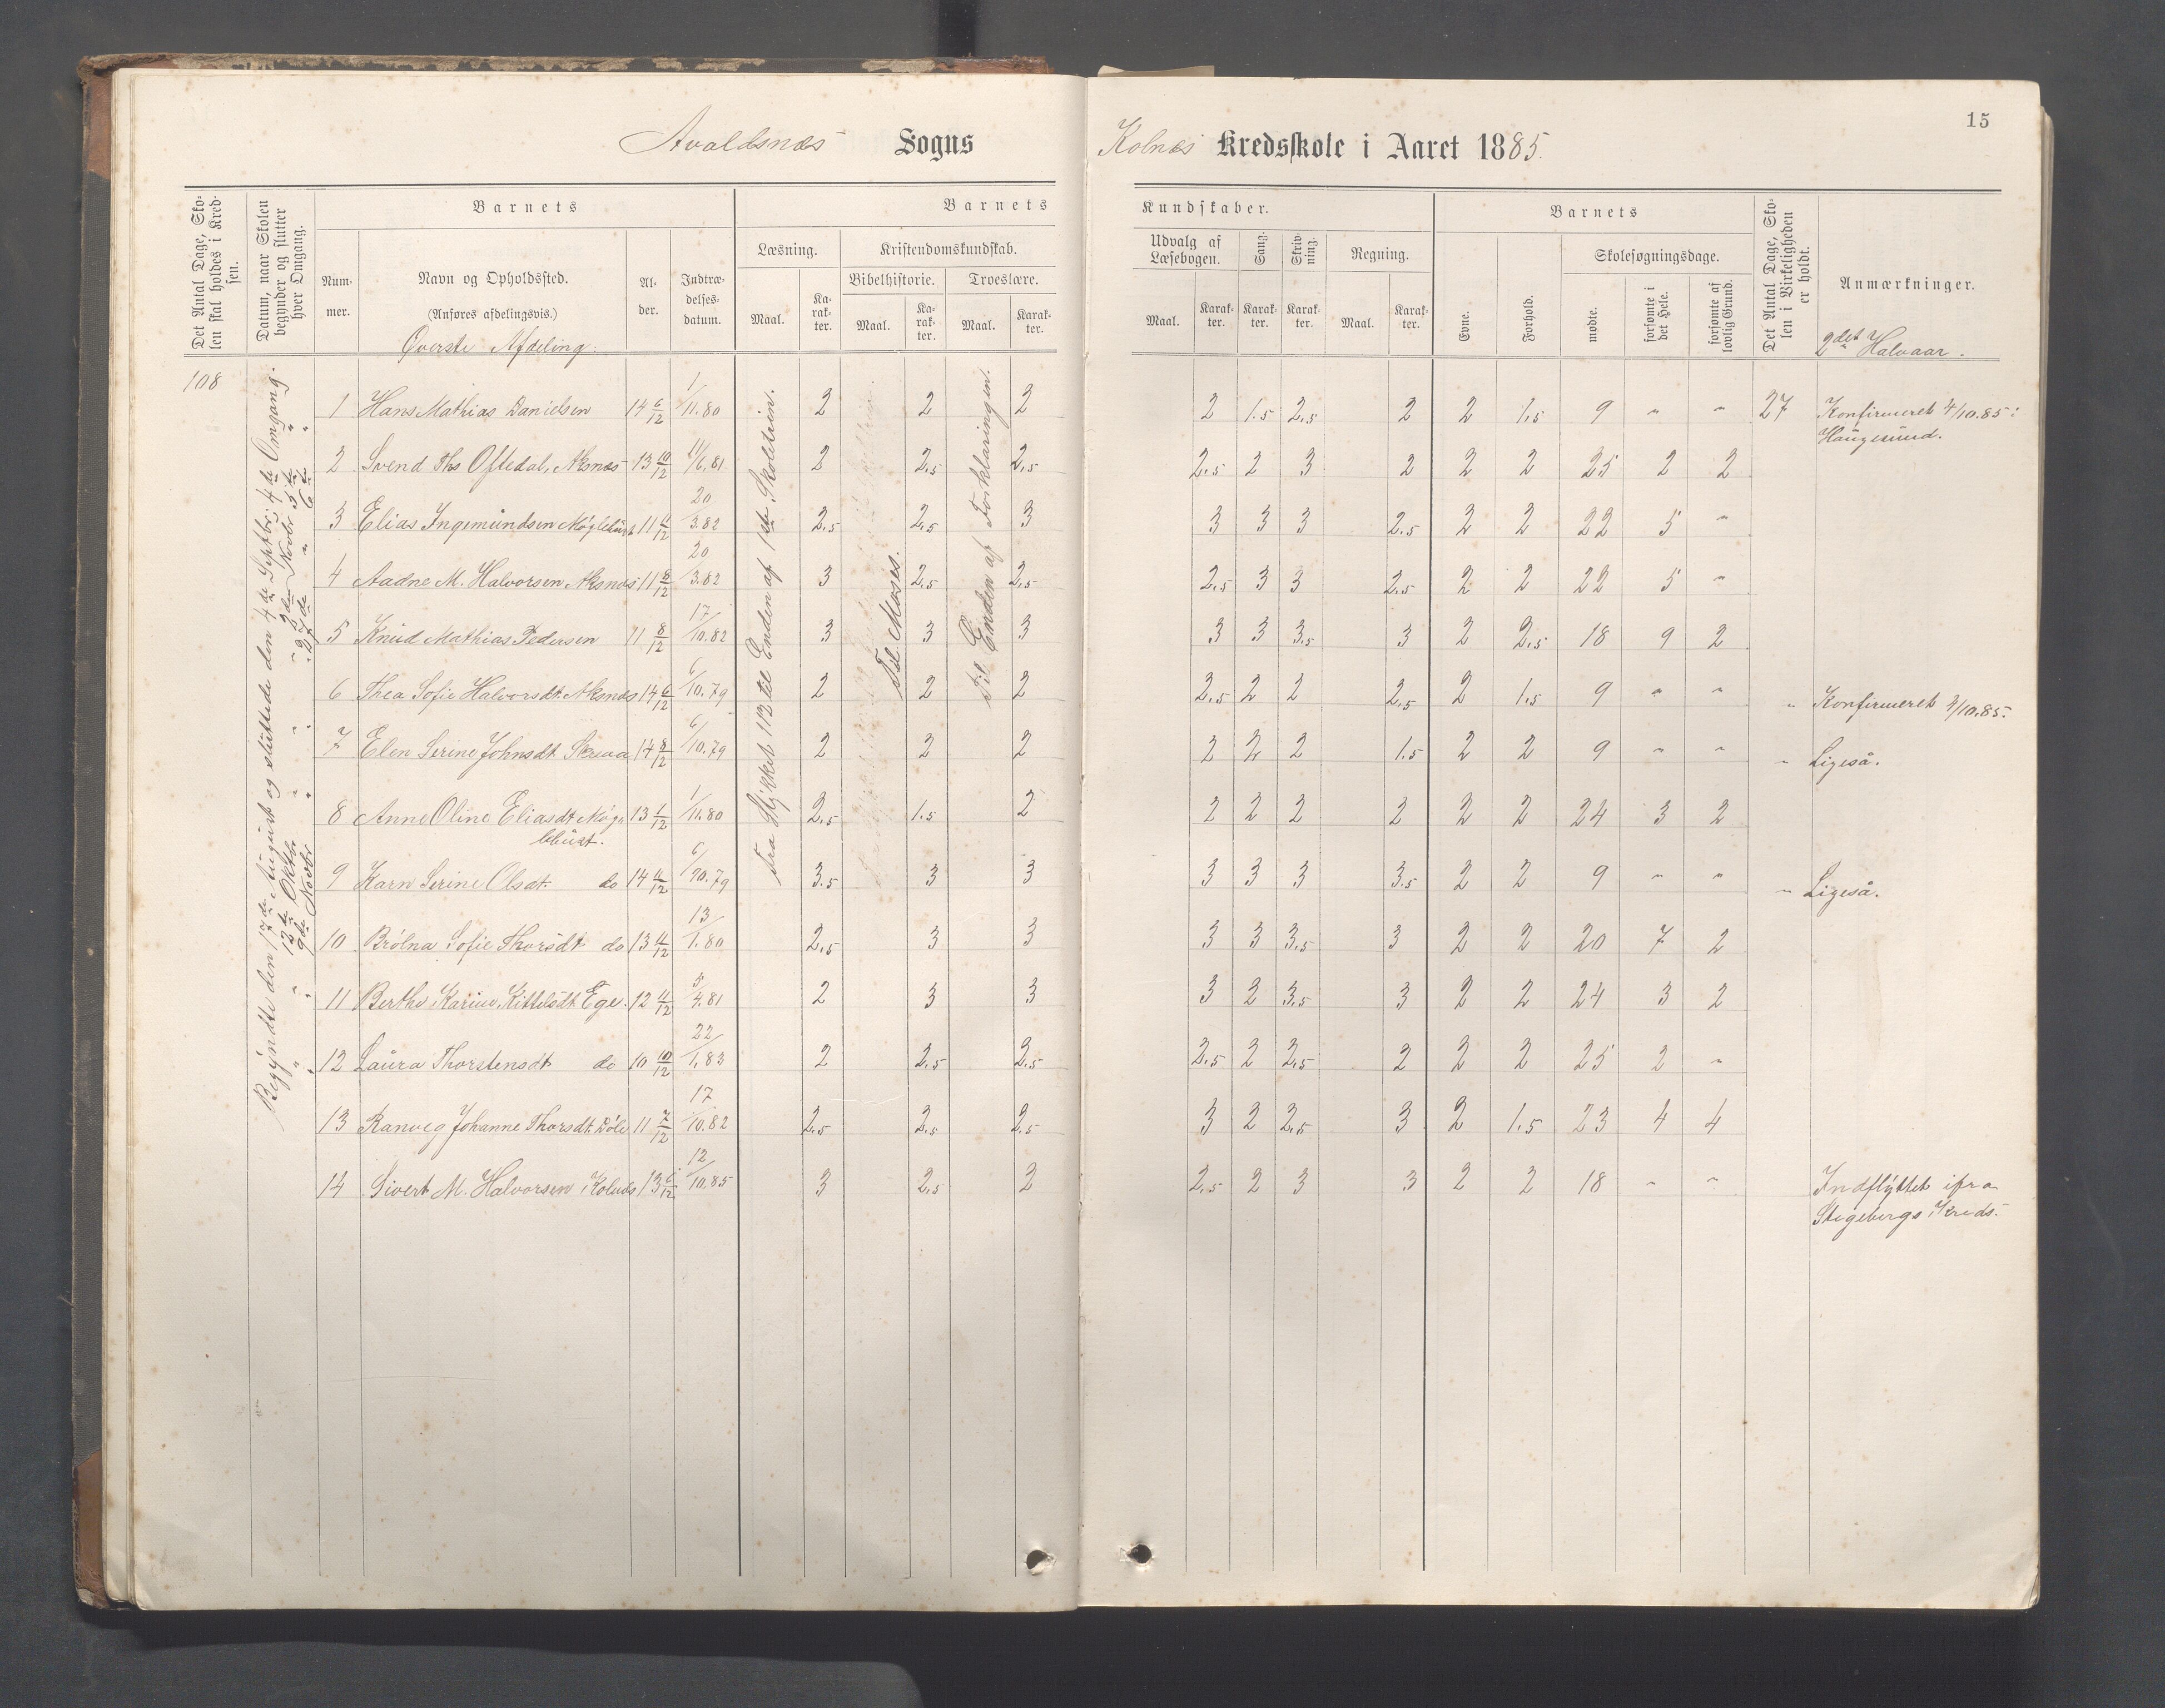 15
Avaldsnæs Sogns Kolnæs Kredsskole i Aaret 1885.
Det Antal Dage, Sko-
len skal holdes i Kred-
sen.
Datum, naar Skolen
begynder og slutter
hver Omgang.
Barnets
Num-
mer.
Navn og Opholdssted.
(Anføres afdelingsvis.)
Al-
der.
Indtræ-
delses-
datum.
Barnets Kundskaber.
Læsning.
Maal.
Ka-
rak-
ter.
Kristendomskundskab.
Bibelhistorie.
Maal.
Ka-
rak-
ter.
Troeslære.
Maal.
Karak-
ter.
Udvalg af
Læsebogen.
Maal.
Karak-
ter.
Sang.
Karak-
ter.
Skriv-
ning.
Karak-
ter.
Regning.
Maal.
Karak-
ter.
Barnets
Evne.
Forhold.
Skolesøgningsdage.
mødte.
forsømte i
det Hele.
forsømte af
lovlig Grund.
Det Antal Dage, Sko-
len i Virkeligheden
er holdt.
Anmærkninger.
Øverste Afdeling.
2det Halvaar.
108
Begyndte den 17de August og sluttede den 4de Septbr. 4de Omgang.
" " 12te Oktbr " " " Novbr 5te "
" " 9de Novbr " " " 27de " 6te "
Fra Stykket 112 til Enden af 1ste Skoletrin.
Til Moses.
Til Enden af Forklaringen.
1 Hans Mathias Danielsen 14 6/12 1/11.80 2 2 2 2 1.5 2.5 2 2 1.5 9 " " 27 Konfirmeret 4/10.85 i
Haugesund.
2 Svend Ths Oftedal, Aksnæs 13 10/12 11/6.81 2 2.5 2.5 2.5 2 3 2 2 2 25 2 2
3 Elias Ingemundsen Møglebust 11 11/12 20/3.82 2.5 2.5 3 3 3 3 2.5 2 2 22 5 "
4 Aadne M. Halvorsen Aksnæs 11 8/12 20/3.82 3 2.5 2.5 2.5 3 3 2.5 2 2 22 5 "
5 Knud Mathias Pedersen 11 8/12 17/10.82 3 3 3 3 3 3.5 3 2 2.5 18 9 2
6 Thea Sofie Halvorsdt. Aksnæs 14 6/12 6/10.79 2 2 2 2.5 2 2 2.5 2 1.5 9 " " " Konfirmeret 4/10.85.
7 Elen Serine Johnsdt. 14 8/12 6/10.79 2 2 2 2 2 2 1.5 2 2 9 " " " Ligeså.
8 Anne Oline Eliasdt Møg-
lebust. 13 1/12 1/11.80 2.5 1.5 2 2 2 2 2 2 2 24 3 2
9 Karn Serine Olsdt. do 14 11/12 6/10.79 3.5 3 3 3 3 3 3.5 2 2 9 " " " Ligeså.
10 Brølna Sofie Thorsdt do 13 11/12 13/1.80 2.5 3 3 3 3 3.5 3 2 2 20 7 2
11 Berthe Karine Kittelsdt. Ege. 12 11/12 5/4.81 2 3 3 3 2 3.5 3 2 2 24 3 2
12 Laura Thorstensdt do 10 10/12 22/1.83 2 2.5 2.5 2.5 2 2.5 2 2 2 25 2 "
13 Ranveg Johanne Thorsdt. Døle 11 7/12 17/10.82 2.5 2.5 2.5 3 2 2.5 3 2 1.5 23 4 4
14 Sivert M. Halvorsen Kolnæs 13 6/12 12/10.85 3 2.5 2 2.5 2 3 3 2 2 18 " " Indflyttet ifra
Stegebergs Kreds.